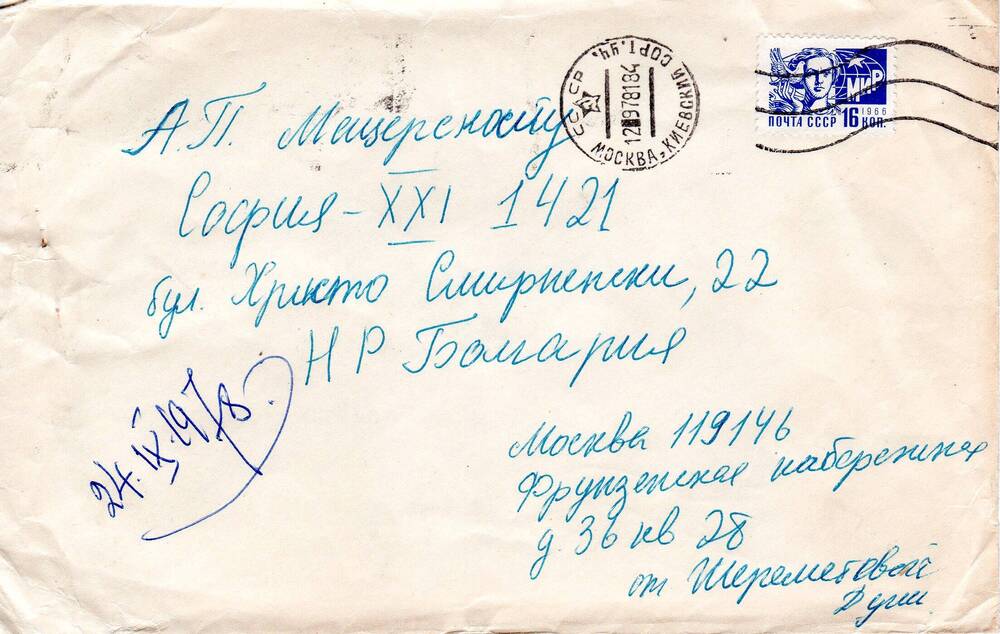 А.П. Мещерскому
София-XXI 1421
бул. Христо Смирненски, 22
НР Болгария
24.IX.1978.
Москва 119146
Фрунзенская набережная
д. 36 кв 28
от Шереметовой
СССР
МОСКВА, КИЕВСКИЙ СОРТ. УЧ.
МИР
1966
ПОЧТА СССР 16 КОП.